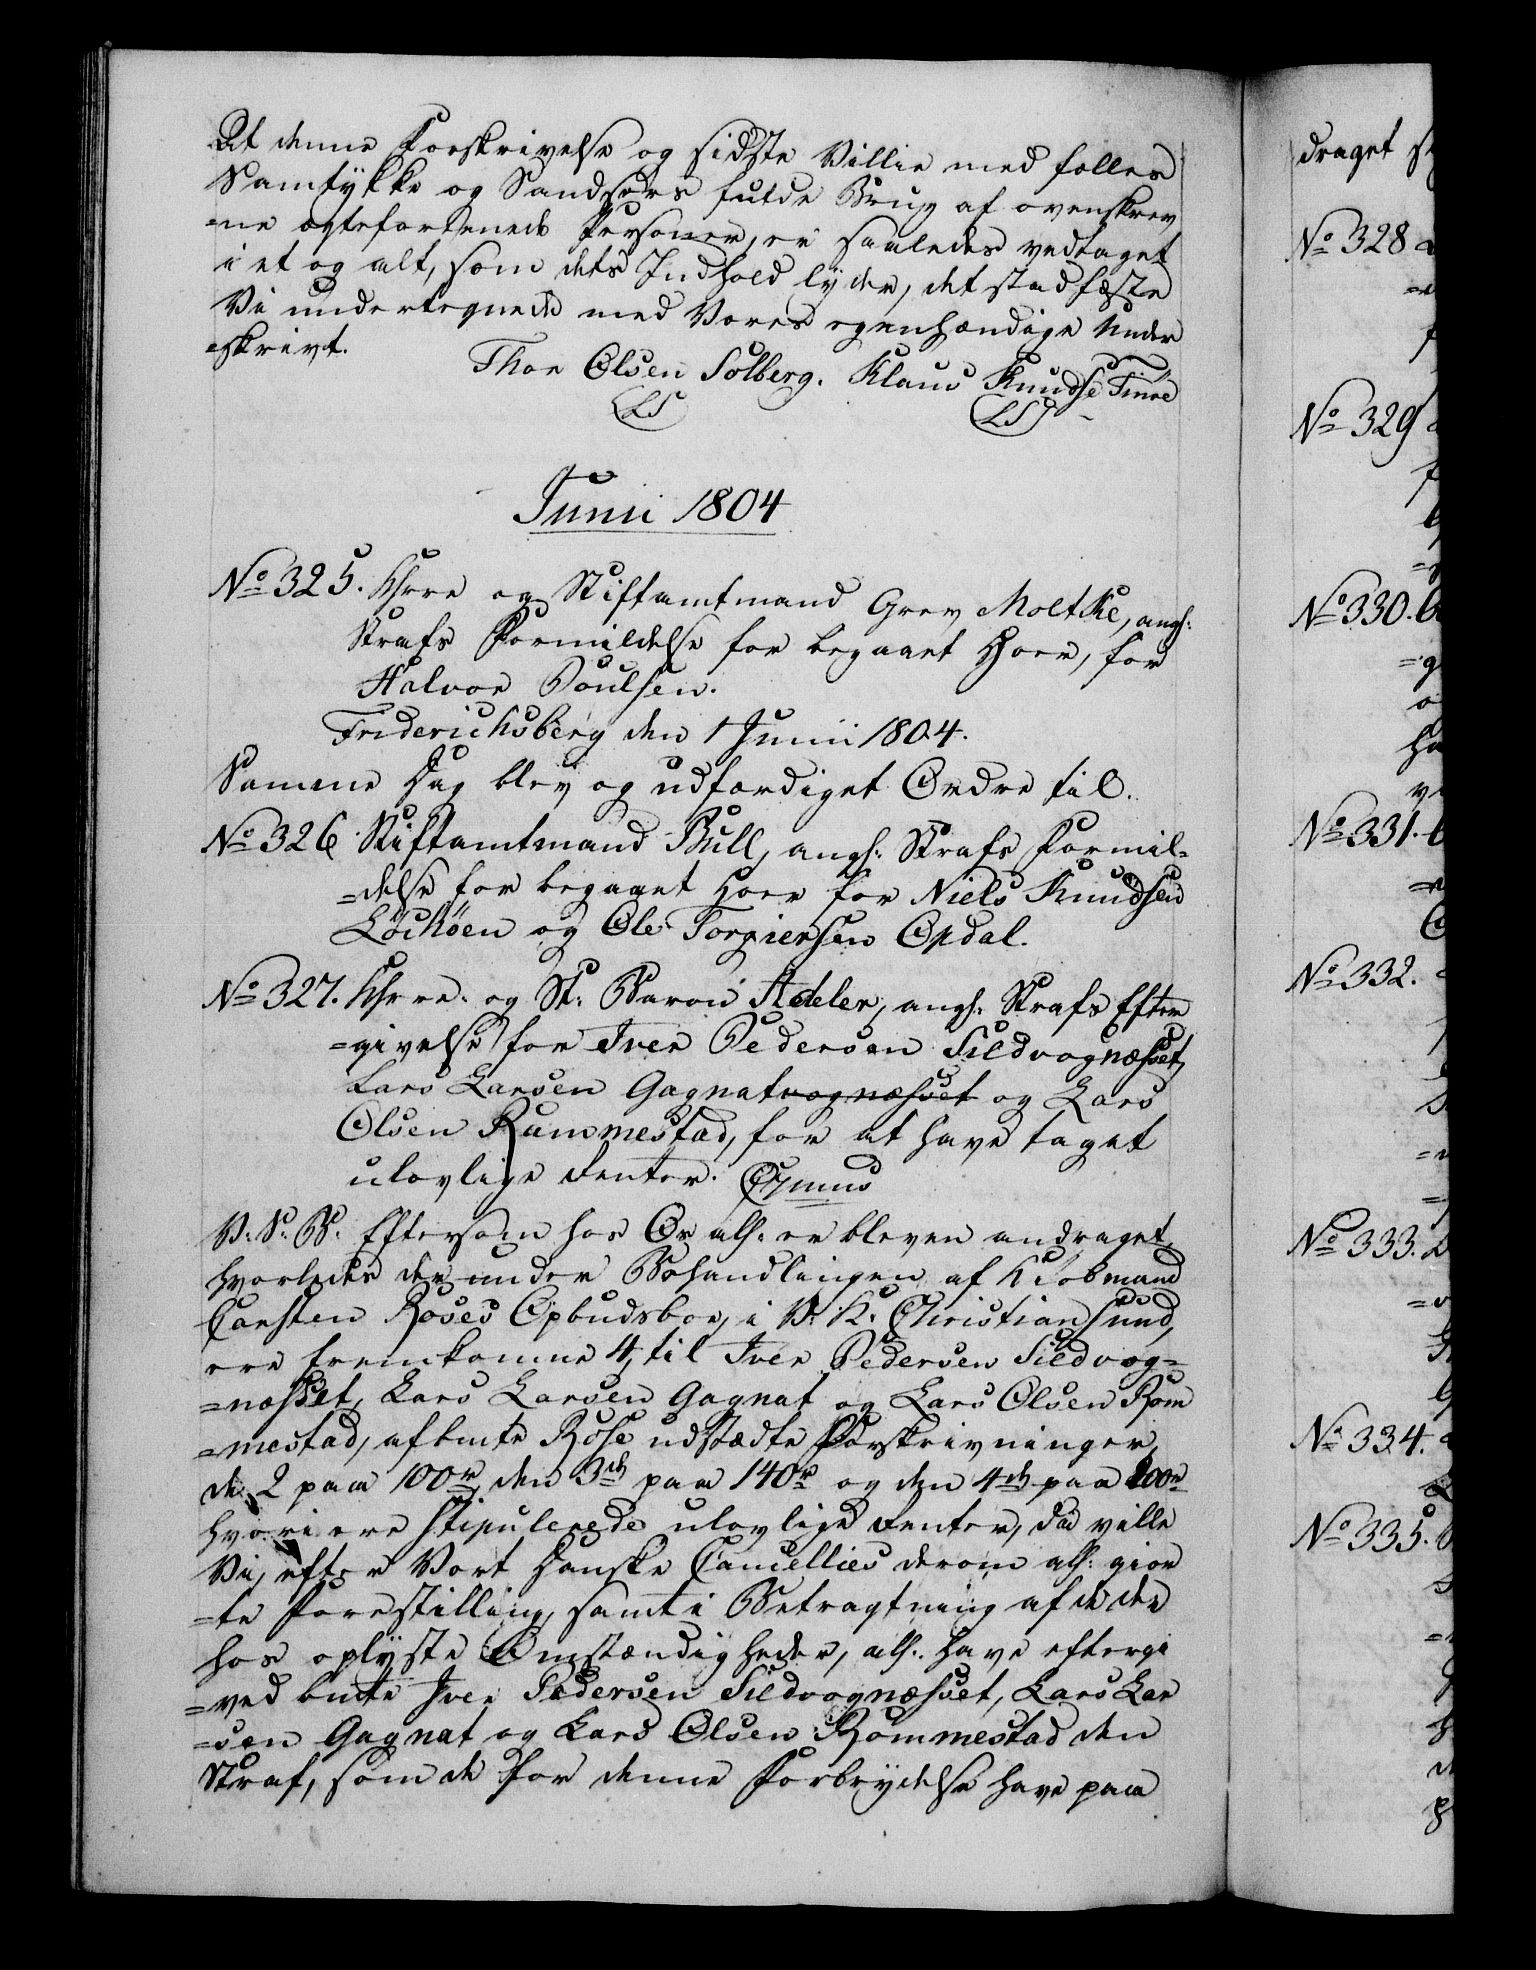 At denne Forskrivelse og sidste Villie med fælles
Samtykke og Sandsers fulde Brug af ovenskrev
=ne ægteforenede Personer, er saaledes vedtaget
i et og alt, som dets Indhold lyder, det stadfæste
Vi undertegnede med Vores egenhændige Under
=skrivt.
Thor Olsen Solberg. Klaus Knudse Tinne
LS LS
Junii 1804
No 325. Khrre og Stiftamtmand Grev Moltke, angh:
Strafs Formildelse for begaaet Hoer, for
Halvor Poulsen.
Friderichsberg den 1 Junii 1804.
Samme Dag blev og udfærdiget Ordre til.
No 326. Stiftamtmand Bull, angh: Strafs Formil=
=delse for begaaet Hoer for Niels Knudsen
Löchöen og Ole Torgiersen Opdal.
No 327. Khrre. og St: Baron Adeler, angh: Strafs Efter
=givelse for Iver Pedersen Sildvognæsset,
Lars Larsen Gagnatvognæsset og Lars
Olsen Rammestad, for at have taget
ulovlige Renter.
V: S: B: Eftersom hos Os alh: er bleven andraget,
hvorledes der under Behandlingen af Kiöbmand
Carsten Roses Opbudsboe, i V: K: Christiansund,
ere fremkomne 4, til Iver Pedersen Sildvog=
=næsset, Lars Larsen Gagnat og Lars Olsen Rom
=mestad, af bmte Rose udstædte Forskrivninger,
de 2 paa 100 r, den 3de paa 140 r og den 4de paa 200 r
hvori ere stipulerede ulovlige Renter, da ville
Vi, efter Vort Danske Cancellies derom alh: gior
=te Forestilling, samt i Betragtning af de der
hos oplyste Omstændigheder, alh: have eftergi
=ved bmte Iver Pedersen Sildvognæsset, Lars Lar
=sen Gagnat og Lars Olsen Rommestad den
Straf, som de for denne Forbrydelse have paa
draget
No 328
No 329
No 330.
No 331.
No 332.
No 333.
No 334.
No 335.